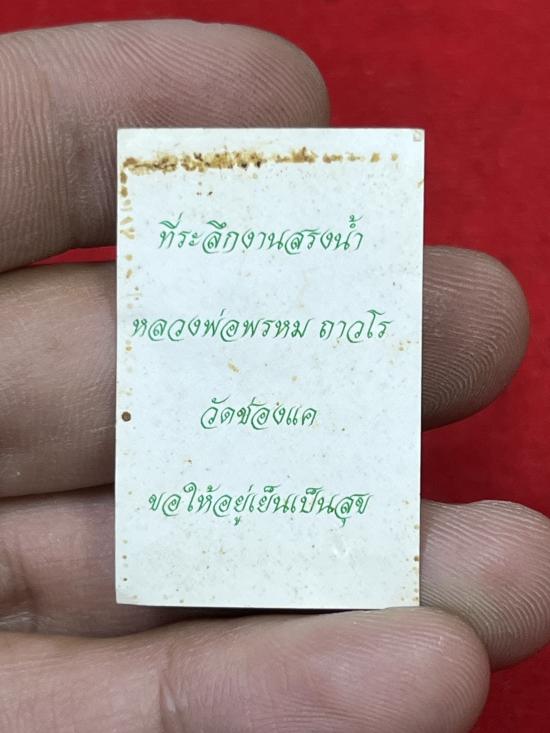 ที่ระลึกงานสรงน้ำ
หลวงพ่อพรหม ถาวโร
วัดช่องแค
ขอให้อยู่เย็นเป็นสุข